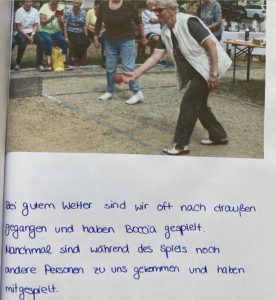 Bei gutem Wetter sind wir oft nach draußen
gegangen und haben Boccia gespielt.
Manchmal sind während des Spiels noch
andere Personen zu uns gekommen und haben
mitgespielt.